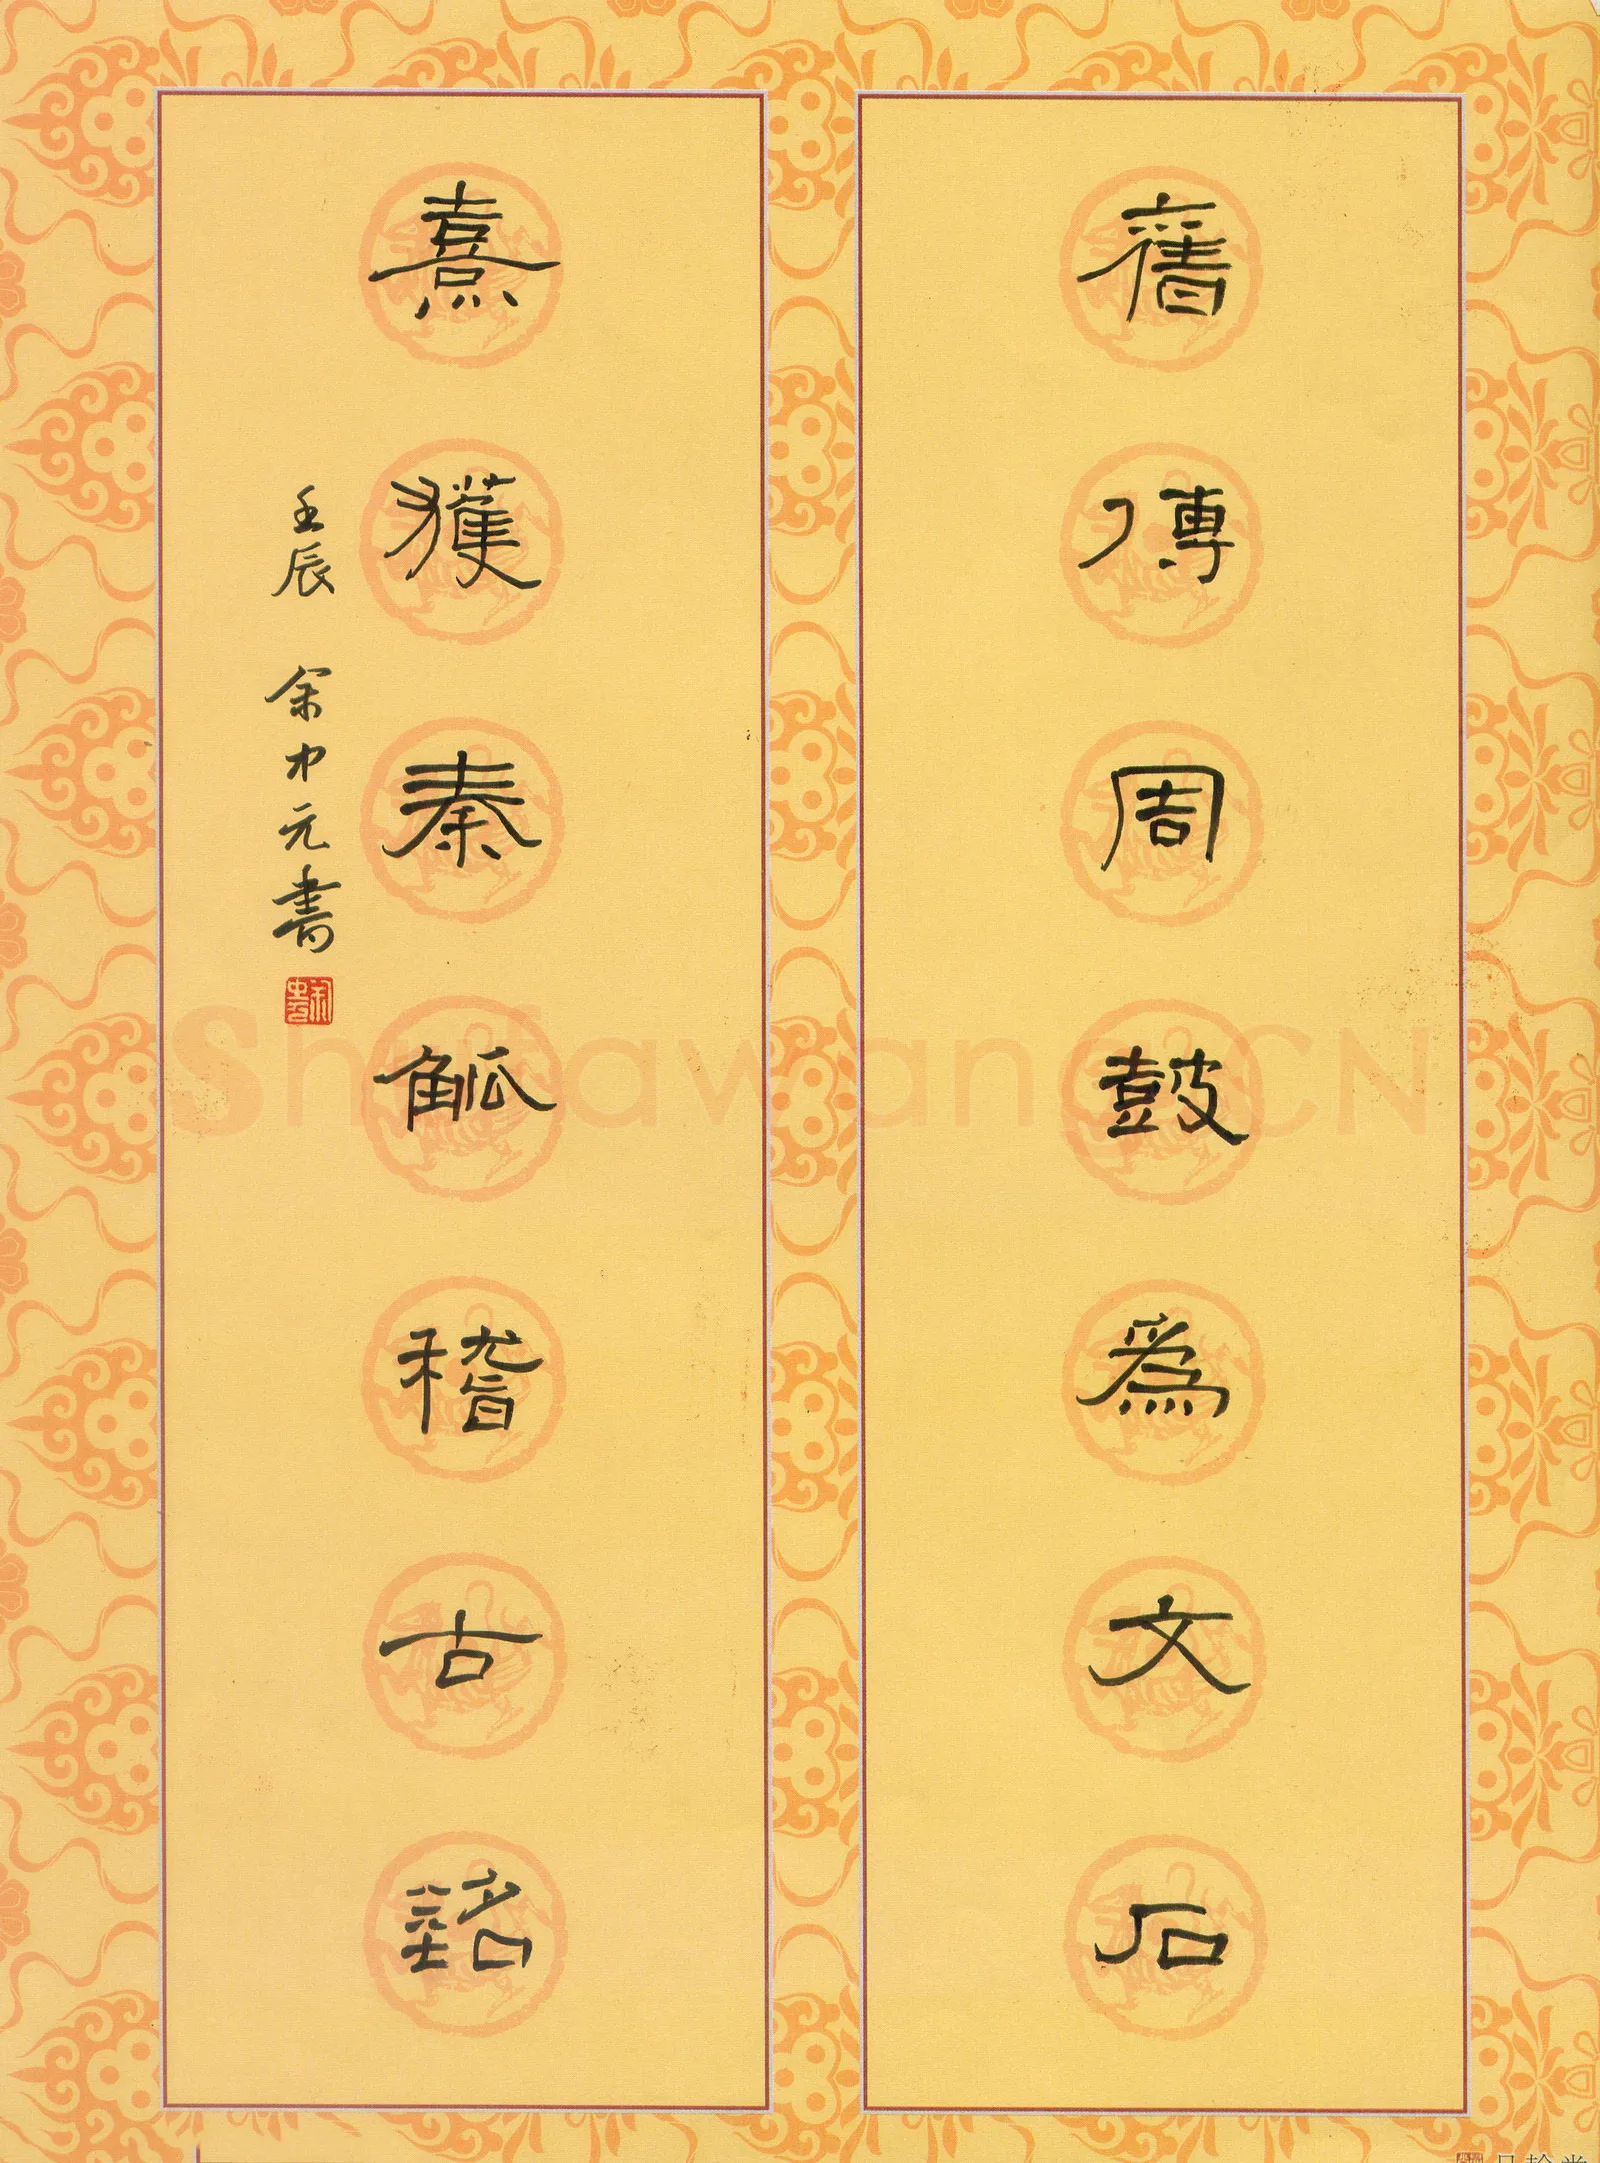 舊傳周鼓為文石
熹獲秦觚稽古銘
壬辰 余中元書
Shufawang.CN